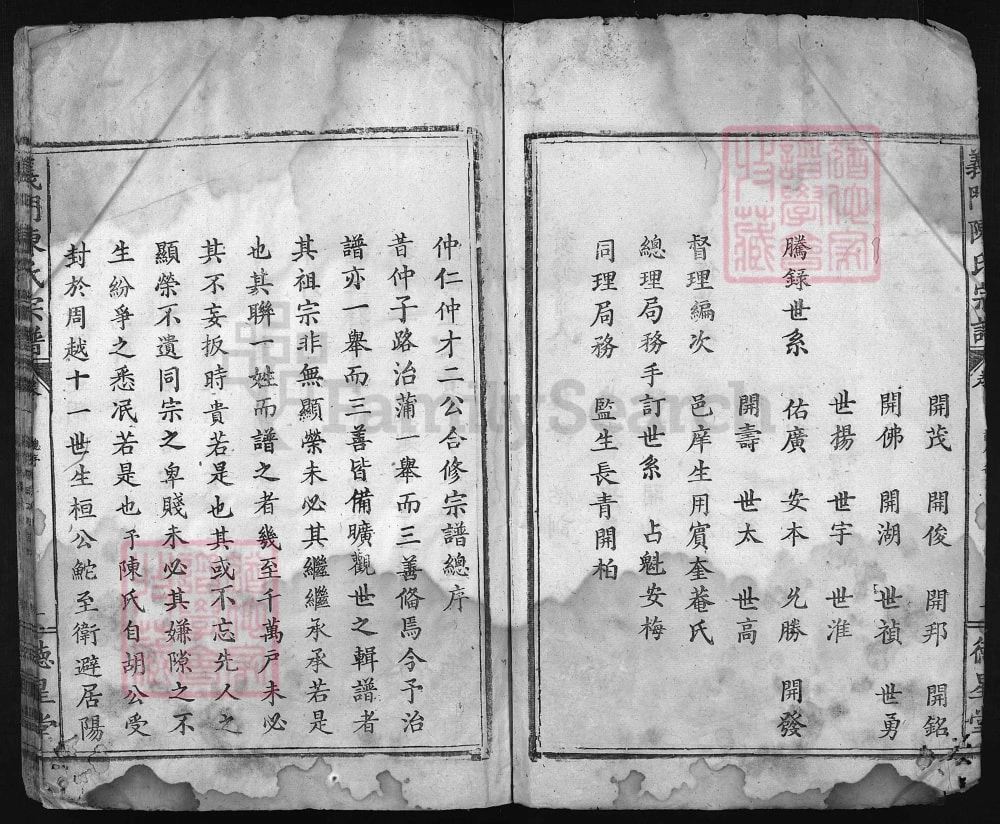 義門陳氏宗譜
德星堂
開茂 開俊 開邦 開銘
開佛 開湖 世禎 世勇
世揚 世宇 世淮
騰録世系 佑廣 安本 允勝 開發
開壽 世太 世高
督理編次 邑庠生用賔奎菴氏
總理局務手訂世系 占魁安梅
同理局務 監生長青開柏
仲仁仲才二公合修宗譜總序
昔仲子路治蒲一舉而三善偹焉令予治
譜亦一舉而三善皆備曠觀世之輯譜者
其祖宗非無顯榮未必其繼繼承承若是
也其聨一姓而譜之者幾至千萬戸未必
其不妄扳時貴若是也其或不忘先人之
顯榮不遺同宗之卑賤未必其嫌隙之不
生紛爭之悉泯若是也予陳氏自胡公受
封於周越十一世生桓公鮀至衛避居陽
義門陳氏宗譜
德星堂
FamilySearch